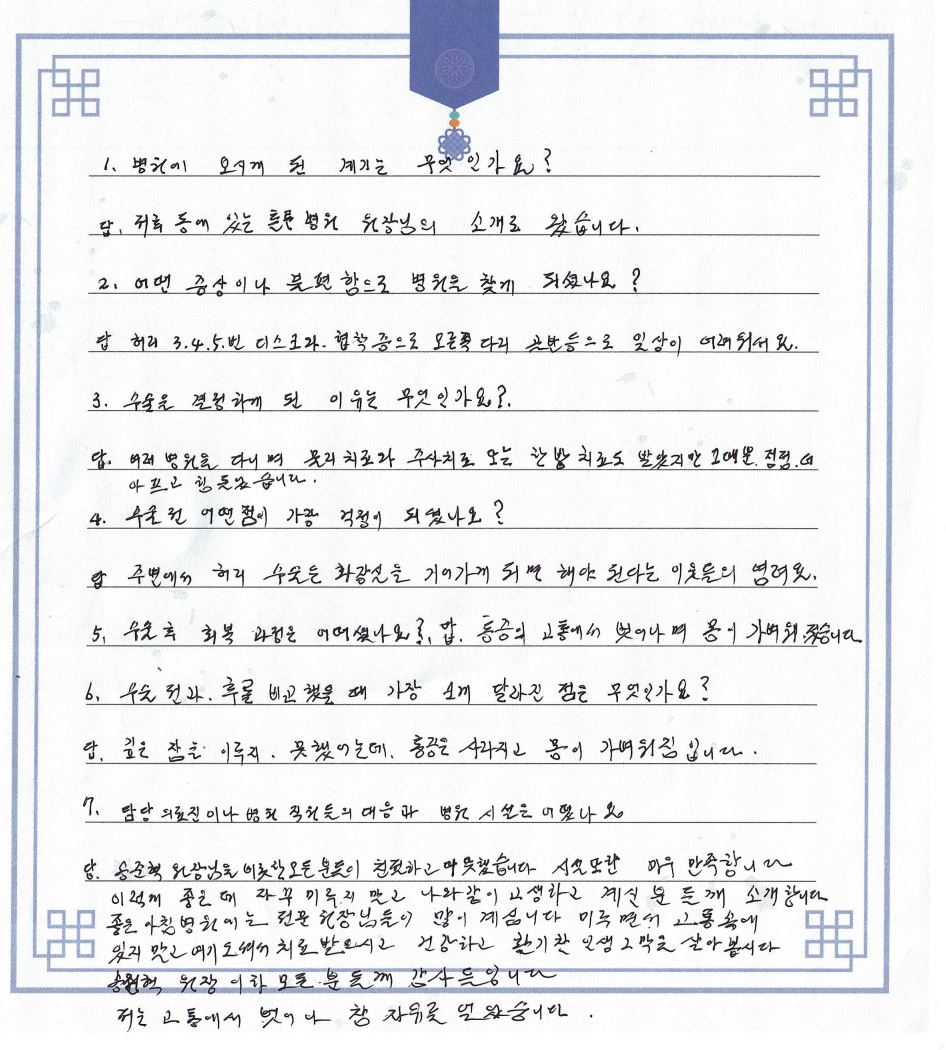 1. 병원에 오시게 된 계기는 무엇인가요?
답. 동에 있는 튼튼병원 원장님의 소개로 왔습니다.
2. 어떤 증상이나 불편함으로 병원을 찾게 되셨나요?
답 허리 3.4.5.번 디스크와. 협착증으로 오른쪽 다리 골반등으로 일상이 어려워서요.
3. 수술을 결정하게 된 이유는 무엇인가요?.
답. 여러 병원을 다니며 물리치료와 주사치료 또는 한방치료도 받았지만 그때뿐. 점점.더
아프고 힘들었습니다.
4. 수술전 어떤점이 가장 걱정이 되셨나요?
답 주변에서 허리 수술은 화장실을 기어가게 되면 해야 된다는 이웃들의 염려요.
5. 수술후 회복 과정은 어떠셨나요?. 답. 통증의 고통에서 벗어나며 몸이 가벼워졌습니다
6. 수술 전과. 후를 비교했을 때 가장 크게 달라진 점은 무엇인가요?
답. 깊은 잠을 이루지. 못했었는데. 통증은 사라지고 몸이 가벼워짐입니다.
7. 담당의료진이나 병원 직원들의 대응과 병원 시설은 어땠나요
답. 송준혁 원장님을 비롯한모든분들이 친절하고 따뜻했습니다 시설또한 매우 만족합니다
이렇게 좋은데 자꾸 미루지 말고 나와같이 고생하고 계신 분들께 소개합니다
좋은아침병원에는 전문 원장님들이 많이 계십니다 미루면서 고통속에
있지 말고 여기오셔서 치료받으시고 건강하고 활기찬 인생2막을 살아봅시다
송준혁 원장 이하 모든분들께 감사드립니다
저는 고통에서 벗어나 참 자유를 얻었습니다.